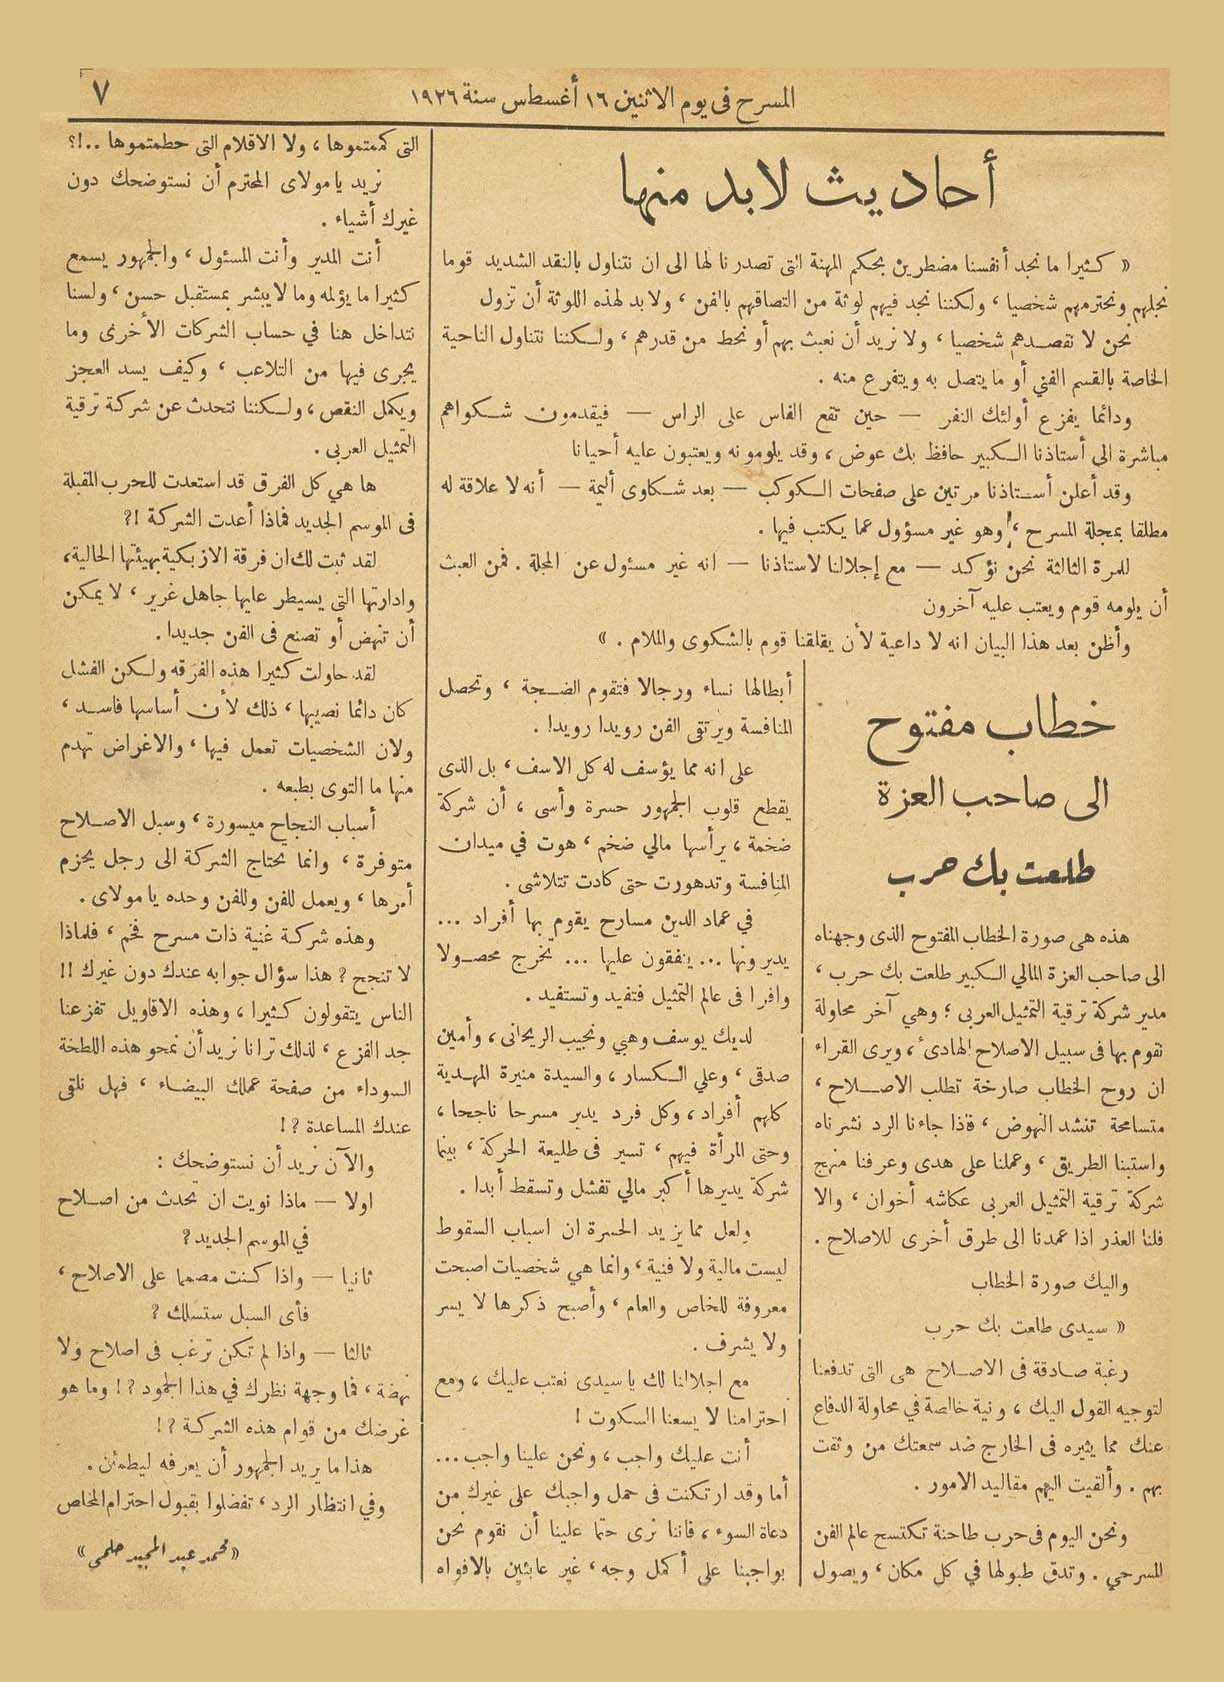 المسرح فى يوم الاثنين ١٦ أغسطس سنة ١٩٢٦
٧
أحاديث لابد منها
« كثيرا ما نجد أنفسنا مضطرين بحكم المهنة التى تصدرنا لها الى ان نتناول بالنقد الشديد قوما
نجلهم ونحترمهم شخصيا ، ولكننا نجد فيهم لوثة من التصاقهم بالفن ، ولابد لهذه اللوثة أن تزول
نحن لا نقصدهم شخصيا ، ولا نريد أن نعبث بهم أو نحط من قدرهم ، ولكننا نتناول الناحية
الخاصة بالقسم الفني أو ما يتصل به ويتفرع منه .
ودائما يفزع أولئك النفر — حين تقع الفاس على الراس — فيقدمون شكواهم
مباشرة الى أستاذنا الكبير حافظ بك عوض ، وقد يلومونه ويعتبون عليه أحيانا
وقد أعلن أستاذنا مرتين على صفحات الكوكب — بعد شكاوى أليمة — أنه لا علاقة له
مطلقا بمجلة المسرح ، وهو غير مسؤول عما يكتب فيها .
للمرة الثالثة نحن نؤكد — مع إجلالنا لاستاذنا — انه غير مسئول عن المجلة . فمن العبث
أن يلومه قوم ويعتب عليه آخرون
وأظن بعد هذا البيان انه لا داعية لأن يقلقنا قوم بالشكوى والملام . »
خطاب مفتوح
الى صاحب العزة
طلعت بك حرب
هذه هى صورة الخطاب المفتوح الذى وجهناه
الى صاحب العزة المالي الكبير طلعت بك حرب ،
مدير شركة ترقية التمثيل العربى ؛ وهي آخر محاولة
نقوم بها فى سبيل الاصلاح الهادىء ، ويرى القراء
ان روح الخطاب صارخة تطلب الاصلاح ،
متسامحة تنشد النهوض ، فاذا جاءنا الرد نشرناه
واستبنا الطريق ، وعملنا على هدى وعرفنا منهج
شركة ترقية التمثيل العربى عكاشه أخوان ، والا
فلنا العذر اذا عمدنا الى طرق أخرى للاصلاح .
واليك صورة الخطاب
« سيدى طلعت بك حرب
رغبة صادقة فى الاصلاح هى التى تدفعنا
لتوجيه القول اليك ، ونية خالصة في محاولة الدفاع
عنك مما يثيره فى الخارج ضد سمعتك من وثقت
بهم . وألقيت اليهم مقاليد الامور .
ونحن اليوم فى حرب طاحنة تكتسح عالم الفن
المسرحي . وتدق طبولها في كل مكان ، ويصول
أبطالها نساء ورجالا فتقوم الضجة ، وتحصل
المنافسة ويرتقى الفن رويدا رويدا .
على انه مما يؤسف له كل الاسف ، بل الذى
يقطع قلوب الجمهور حسرة وأسى ، أن شركة
ضخمة ، يرأسها مالي ضخم ، هوت في ميدان
المنافسة وتدهورت حتى كادت تتلاشى .
في عماد الدين مسارح يقوم بها أفراد ...
يديرونها ... ينفقون عليها ... نخرج محصولا
وافرا فى عالم التمثيل فتفيد وتستفيد .
لديك يوسف وهبي ونجيب الريحانى ، وأمين
صدقى ، وعلي الكسار ، والسيدة منيرة المهدية
كلهم أفراد ، وكل فرد يدير مسرحا ناجحا ،
وحتى المرأة فيهم ، تسير فى طليعة الحركة ، بينما
شركة يديرها أكبر مالي تفشل وتسقط أبدا .
ولعل مما يزيد الحسرة ان اسباب السقوط
ليست مالية ولا فنية ، وانما هي شخصيات اصبحت
معروفة للخاص والعام ، وأصبح ذكرها لا يسر
ولا يشرف .
مع اجلالنا لك يا سيدى نعتب عليك ، ومع
احترامنا لا يسعنا السكوت !
أنت عليك واجب ، ونحن علينا واجب ...
أما وقد ارتكنت فى حمل واجبك على غيرك من
دعاة السوء ، فاننا نرى حتما علينا أن نقوم نحن
بواجبنا على أكمل وجه ، غير عابئين بالافواه
التى كممتموها ، ولا الاقلام التى حطمتموها ..!؟
نريد يامولاى المحترم أن نستوضحك دون
غيرك أشياء .
أنت المدير وأنت المسئول ، والجمهور يسمع
كثيرا ما يؤلمه وما لا يبشر بمستقبل حسن ، ولسنا
نتداخل هنا في حساب الشركات الأخرى وما
يجرى فيها من التلاعب ، وكيف يسد العجز
ويكمل النقص ، ولكننا نتحدث عن شركة ترقية
التمثيل العربى .
ها هي كل الفرق قد استعدت للحرب المقبلة
فى الموسم الجديد فماذا أعدت الشركة !?
لقد ثبت لك ان فرقة الازبكية بهيئتها الحالية ،
وادارتها التى يسيطر عليها جاهل غرير ، لا يمكن
أن تنهض أو تصنع فى الفن جديدا .
لقد حاولت كثيرا هذه الفرقه ولكن الفشل
كان دائما نصيبها ، ذلك لأن أساسها فاسد ،
ولان الشخصيات تعمل فيها ، والاغراض تهدم
منها ما التوى بطبعه .
أسباب النجاح ميسورة ، وسبل الاصلاح
متوفرة ، وانما تحتاج الشركة الى رجل يحزم
أمرها ، ويعمل للفن وللفن وحده يا مولاى .
وهذه شركة غنية ذات مسرح فخم ، فلماذا
لا تنجح ? هذا سؤال جوابه عندك دون غيرك !!
الناس يتقولون كثيرا ، وهذه الاقاويل تفزعنا
جد الفزع ، لذلك ترانا نريد أن نمحو هذه اللطخة
السوداء من صفحة عملك البيضاء ، فهل نلقى
عندك المساعدة ?!
والآن نريد أن نستوضحك :
اولا — ماذا نويت ان تحدث من اصلاح
في الموسم الجديد ?
ثانيا — واذا كنت مصمما على الاصلاح ،
فأى السبل ستسلك ?
ثالثا — واذا لم تكن ترغب فى اصلاح ولا
نهضة ، فما وجهة نظرك في هذا الجمود ?! وما هو
غرضك من قوام هذه الشركة ?!
هذا ما يريد الجمهور أن يعرفه ليطمئن .
وفي انتظار الرد ، تفضلوا بقبول احترام المخلص
« محمد عبد المجيد حلمى »